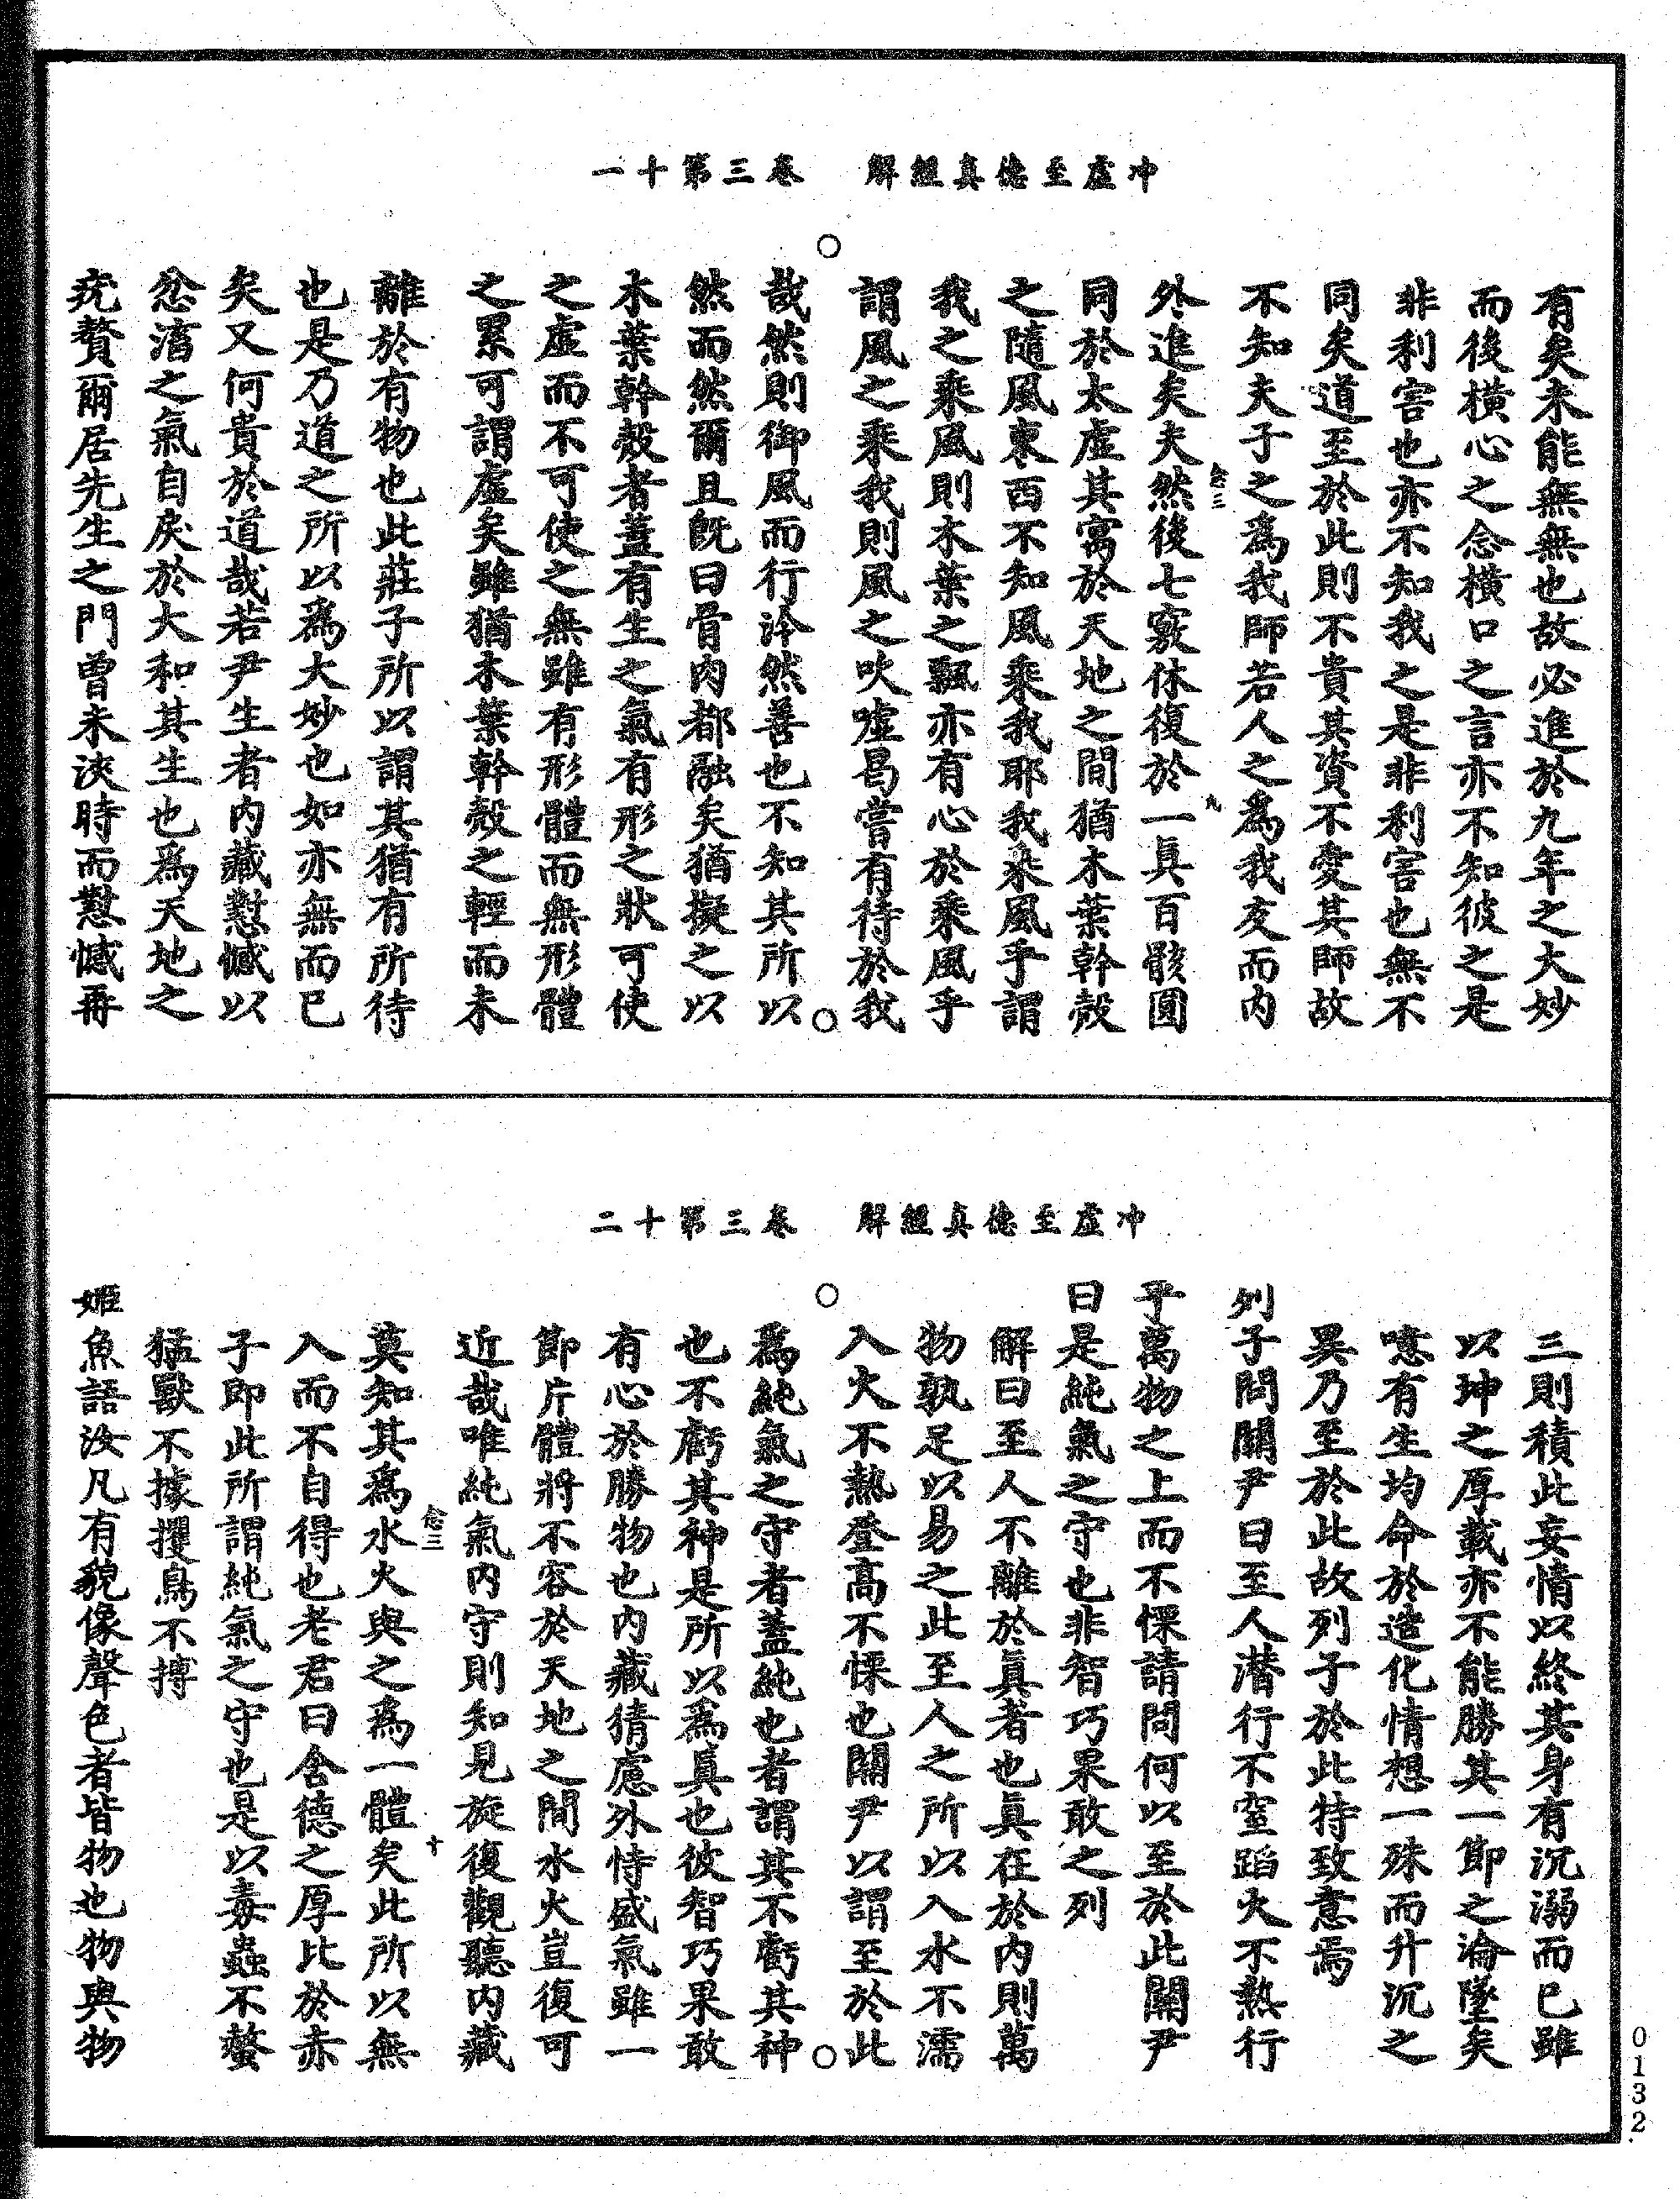 冲虛至德真經解　卷三第十一
有矣未能無無也故必進於九年之大妙
而後橫心之念橫口之言亦不知彼之是
非利害也亦不知我之是非利害也無不
同矣道至於此則不貴其資不愛其師故
不知夫子之為我師若人之為我友而內
外進矣夫然後七竅休復於一真百骸圓
念三
九
同於太虛其寓於天地之間猶木葉幹殼
之隨風東西不知風乘我耶我乘風乎謂
我之乘風則木葉之飄亦有心於乘風乎
謂風之乘我則風之吹噓曷嘗有待於我
哉然則御風而行泠然善也不知其所以
然而然爾且既曰骨肉都融矣猶擬之以
木葉幹殼者蓋有生之氣有形之狀可使
之虛而不可使之無雖有形體而無形體
之累可謂虛矣雖猶木葉幹殼之輕而未
離於有物也此莊子所以謂其猶有所待
也是乃道之所以為大妙也如亦無而已
矣又何貴於道哉若尹生者內藏懟憾以
忿滀之氣自戾於大和其生也為天地之
疣贅爾居先生之門曾未浹時而懟憾再
冲虛至德真經解　卷三第十二
三則積此妄情以終其身有沉溺而已雖
以坤之厚載亦不能勝其一節之淪墜矣
噫有生均命於造化情想一殊而升沉之
異乃至於此故列子於此特致意焉
列子問關尹曰至人潛行不窒蹈火不熱行
乎萬物之上而不慄請問何以至於此關尹
曰是純氣之守也非智巧果敢之列
解曰至人不離於真者也真在於內則萬
物孰足以易之此至人之所以入水不濡
入火不熱登高不慄也關尹以謂至於此
為純氣之守者蓋純也者謂其不虧其神
也不虧其神是所以為真也彼智巧果敢
有心於勝物也內藏猜慮外恃盛氣雖一
節片體將不容於天地之間水火豈復可
近哉唯純氣內守則知見旋復觀聽內藏
莫知其為水火與之為一體矣此所以無
念三
十
入而不自得也老君曰含德之厚比於赤
子即此所謂純氣之守也是以毒蟲不螫
猛獸不據攫鳥不搏
姬魚語汝凡有貌像聲色者皆物也物與物
0132